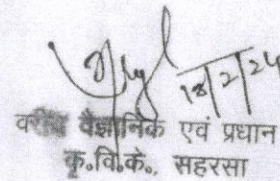 18/2/24
वरीय वैज्ञानिक एवं प्रधान
कृ०वि०के०, सहरसा